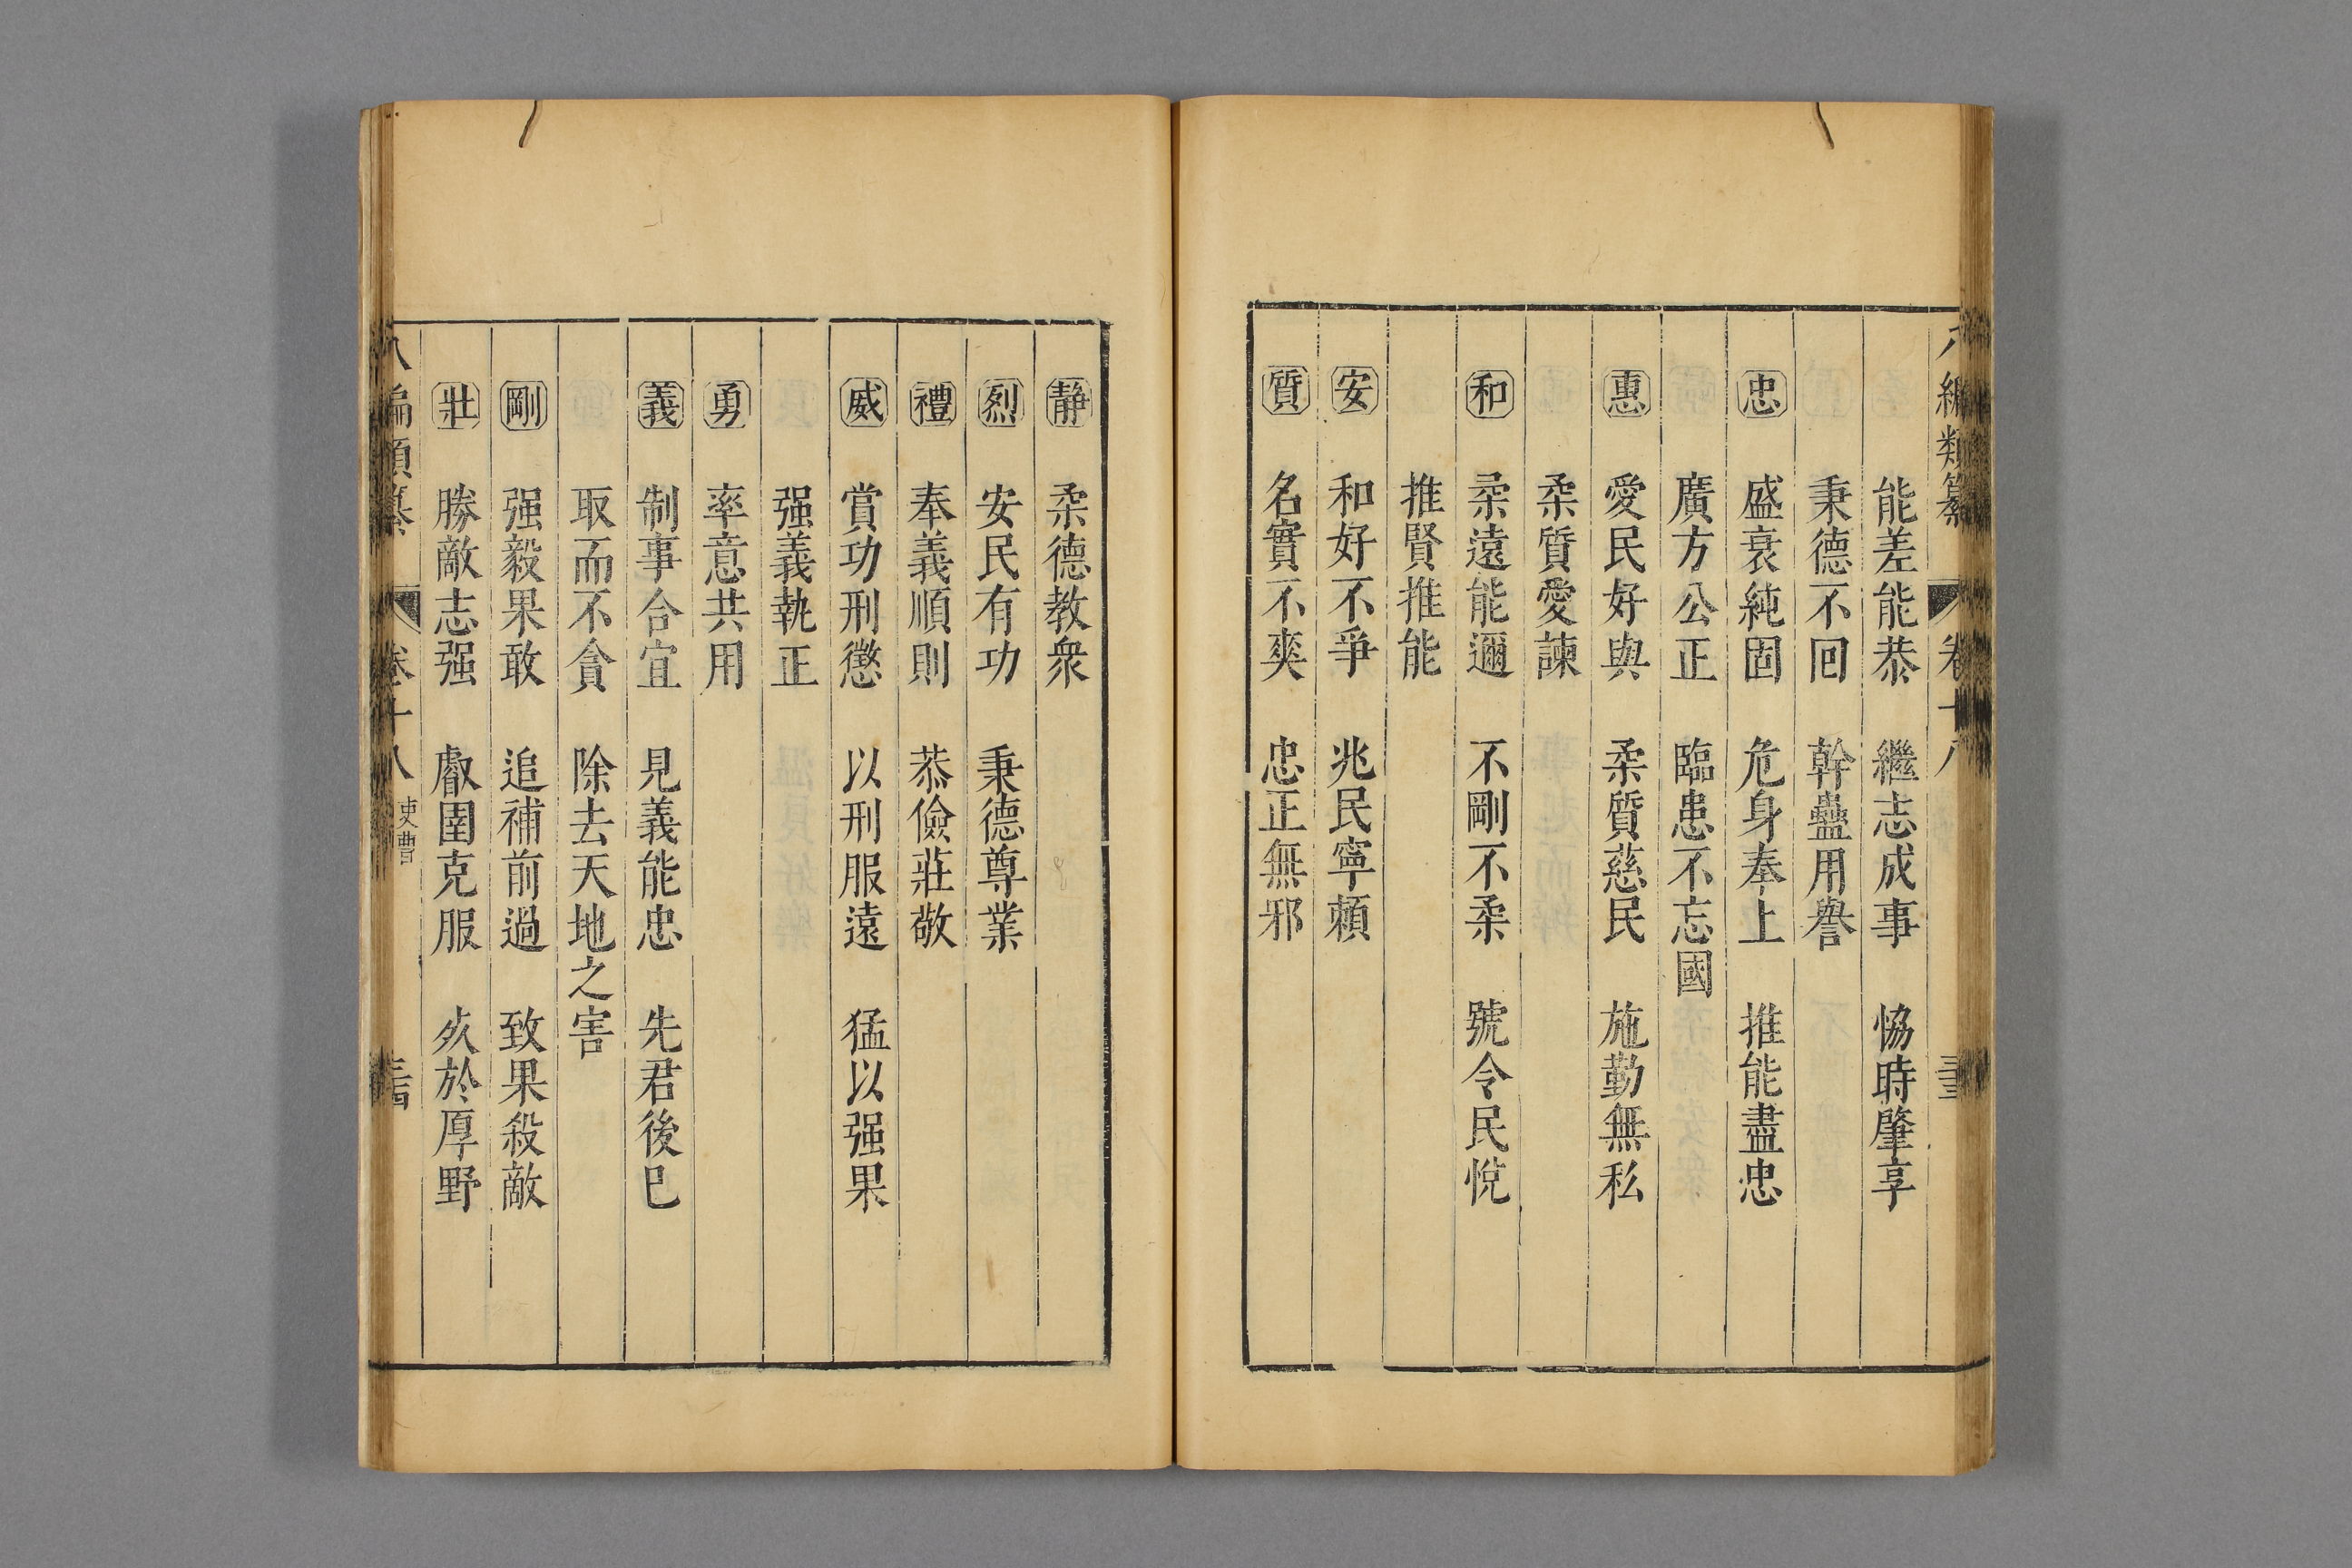 八編類纂 卷十八
能差能恭 繼志成事 恊時肇享
秉德不回 幹蠱用譽
忠 盛衰純固 危身奉上 推能盡忠
廣方公正 臨患不忘國
惠 愛民好與 柔質慈民 施勤無私
柔質愛諫
和 柔遠能邇 不剛不柔 號令民悅
推賢推能
安 和好不爭 兆民寧賴
質 名實不爽 忠正無邪
靜 柔德教衆
烈 安民有功 秉德尊業
禮 奉義順則 恭儉莊敬
威 賞功刑懲 以刑服遠 猛以强果
强義執正
勇 率意共用
義 制事合宜 見義能忠 先君後已
取而不貪 除去天地之害
剛 强毅果敢 追補前過 致果殺敵
壯 勝敵志强 叡圉克服 死於厚野
八編類纂 卷十八 吏曹